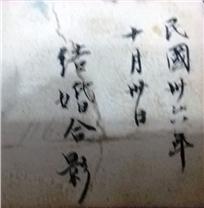 民國卅六年
十月卅日
结婚合影